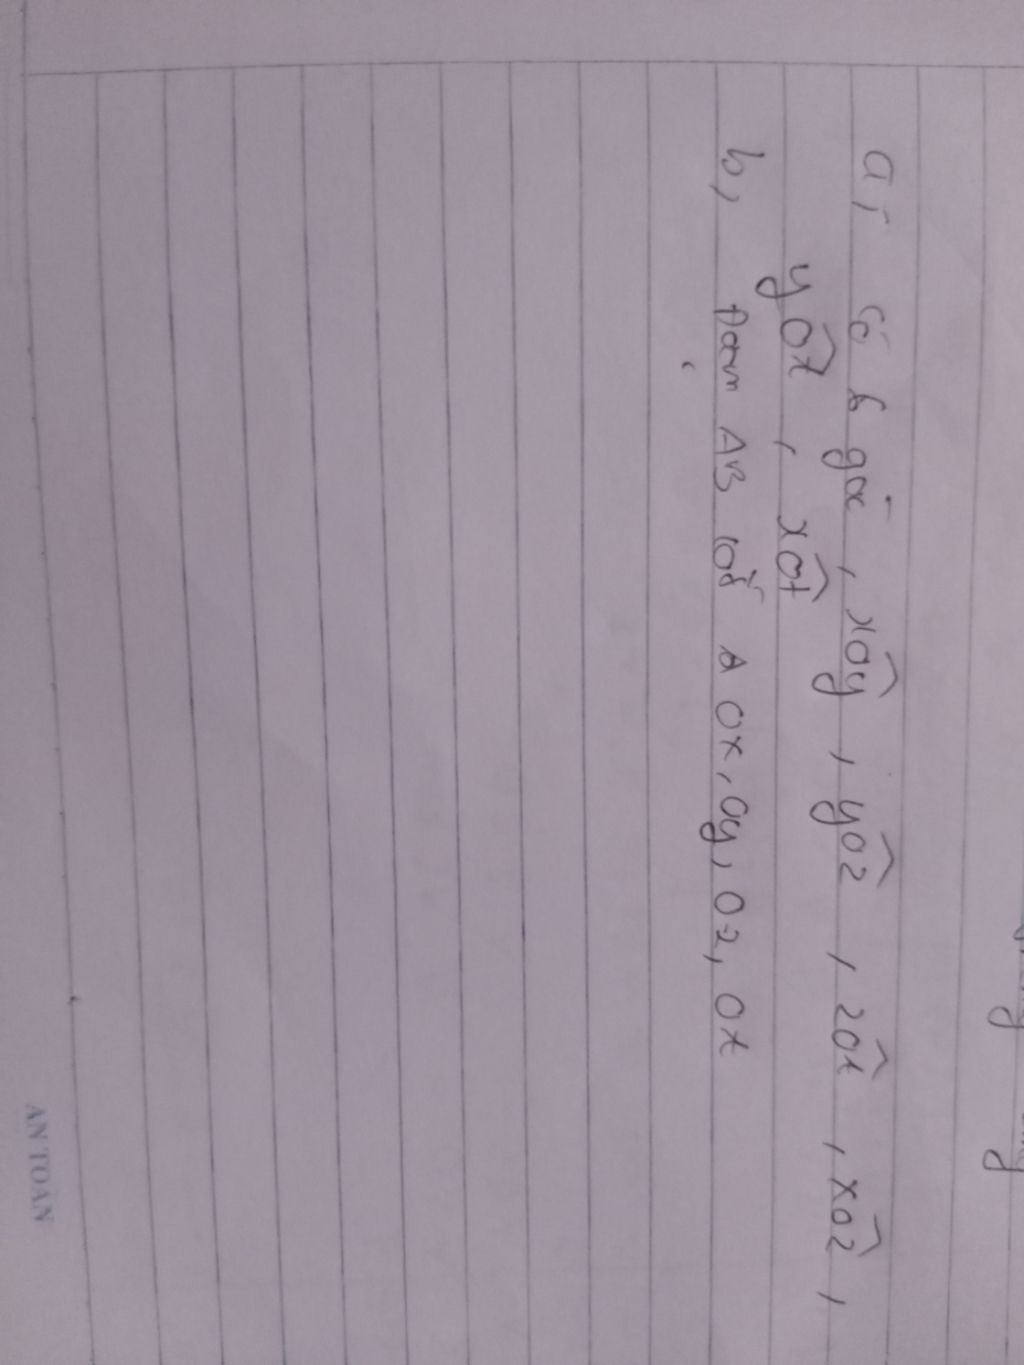 a, có 6 góc, xOy, yOz, zOt, xOz,
yOt, xOt
b, Đoạn AB cắt Ox, Oy, Oz, Ot
AN TOÀN